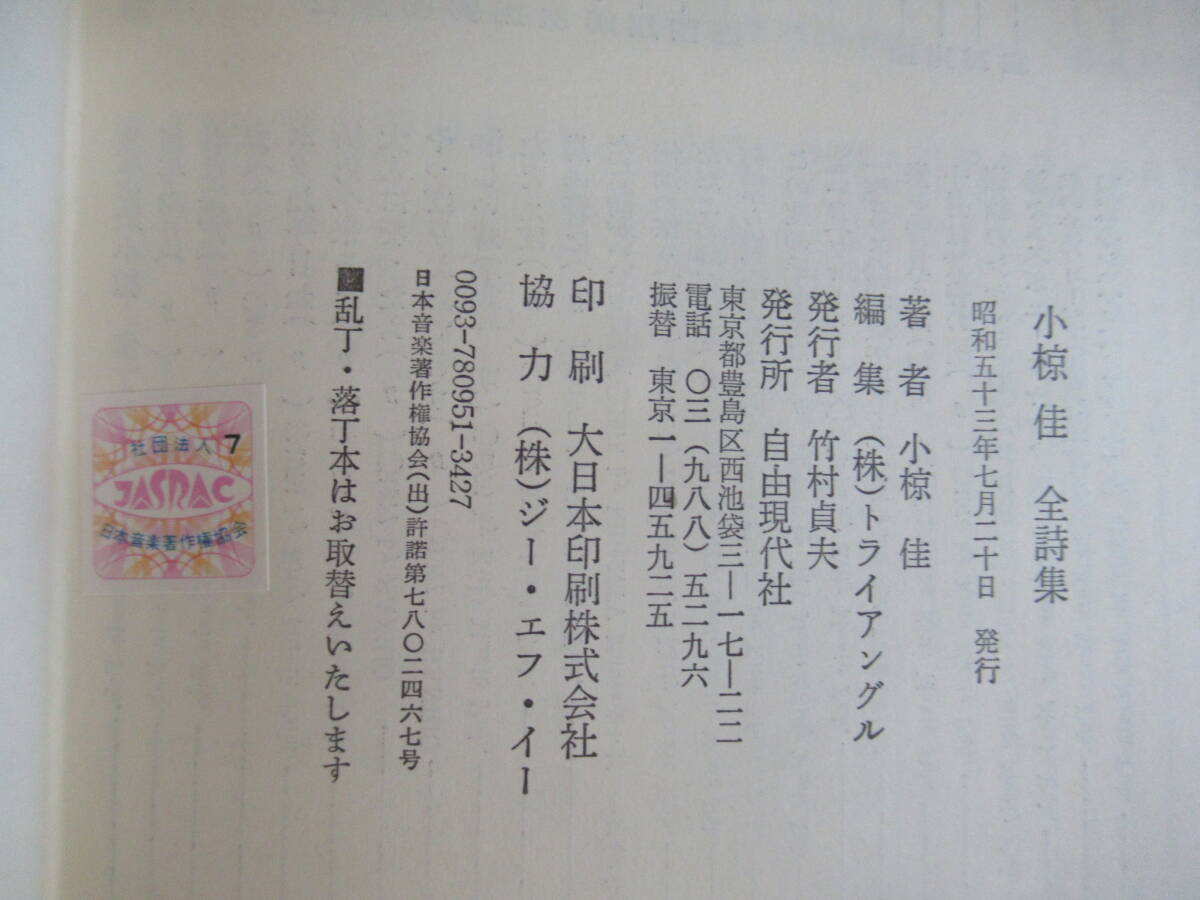 小椋 佳 全詩集
昭和五十三年七月二十日 発行
著者 小椋 佳
編集 (株)トライアングル
発行者 竹村貞夫
発行所 自由現代社
東京都豊島区西池袋三ー一七ー二二
電話 〇三(九八八)五二九六
振替 東京一ー四五九二五
印刷 大日本印刷株式会社
協力 (株)ジー・エフ・イー
0093-780951-3427
日本音楽著作権協会(出)許諾第七八〇二四六七号
■乱丁・落丁本はお取替えいたします
社団法人 7
JASRAC
日本音楽著作権協会